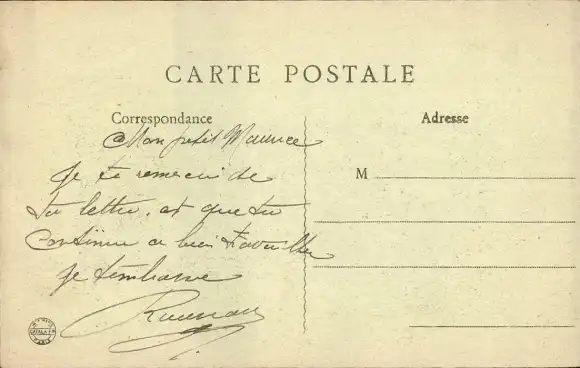 CARTE POSTALE
Correspondance
Adresse
Mon petit Maurice
Je te remercie de
ta lettre. et que tu
continue a bien travailler
je t'embrasse
M
CATALA Frs
PARIS